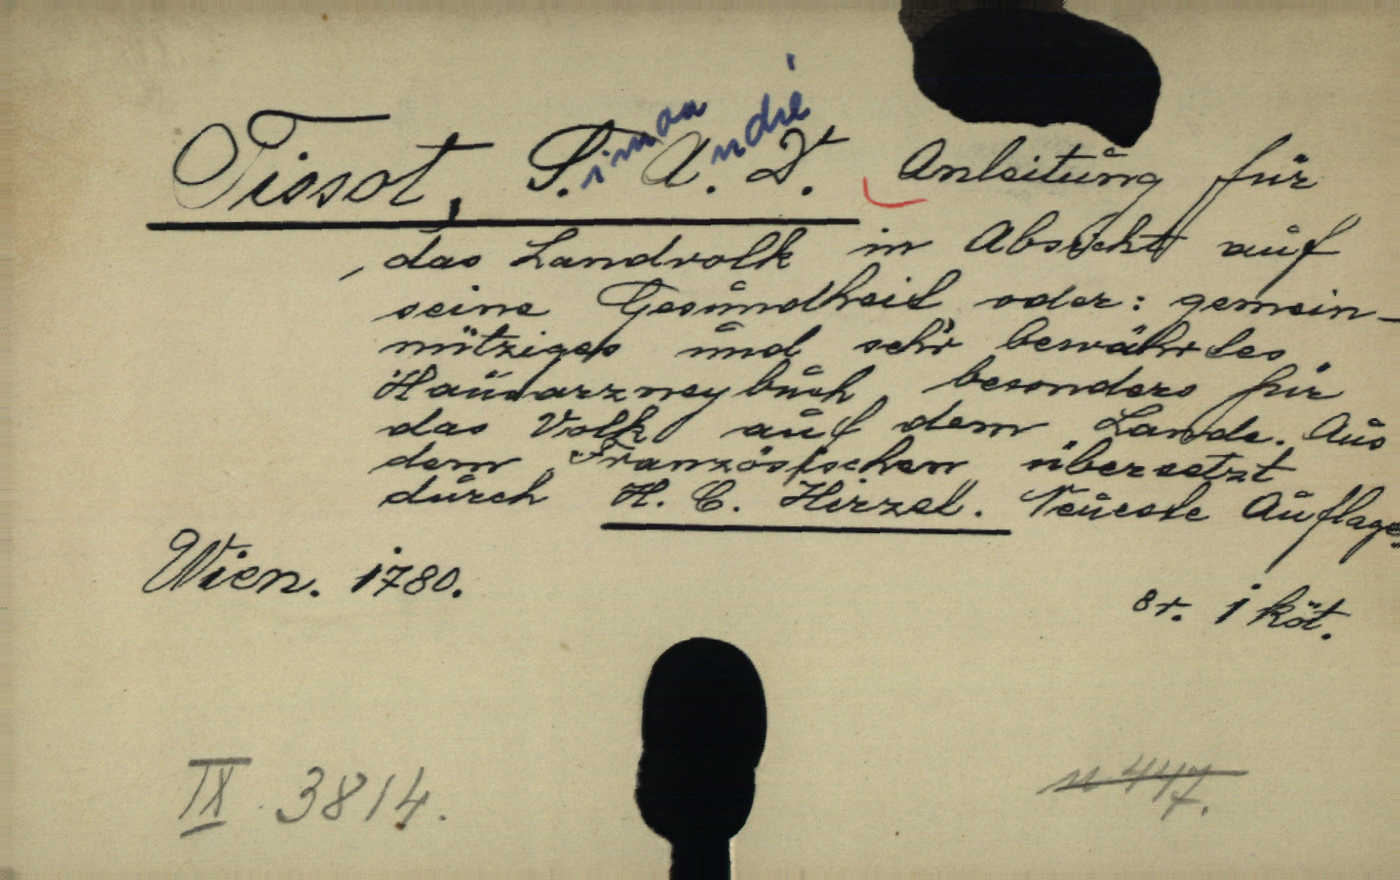 Tissot, S.imon A.ndré D. Anleitung für
das Landvolk in Absicht auf
seine Gesundheit oder: gemein-
nütziges und sehr bewährtes
Hausarzneybuch besonders für
das Volk auf dem Lande. Aus
dem Französischen übersetzt
durch H. C. Hirzel. Neueste Auflage.
Wien. 1780.
8r. 1 köt.
IX. 3814.
n 447.